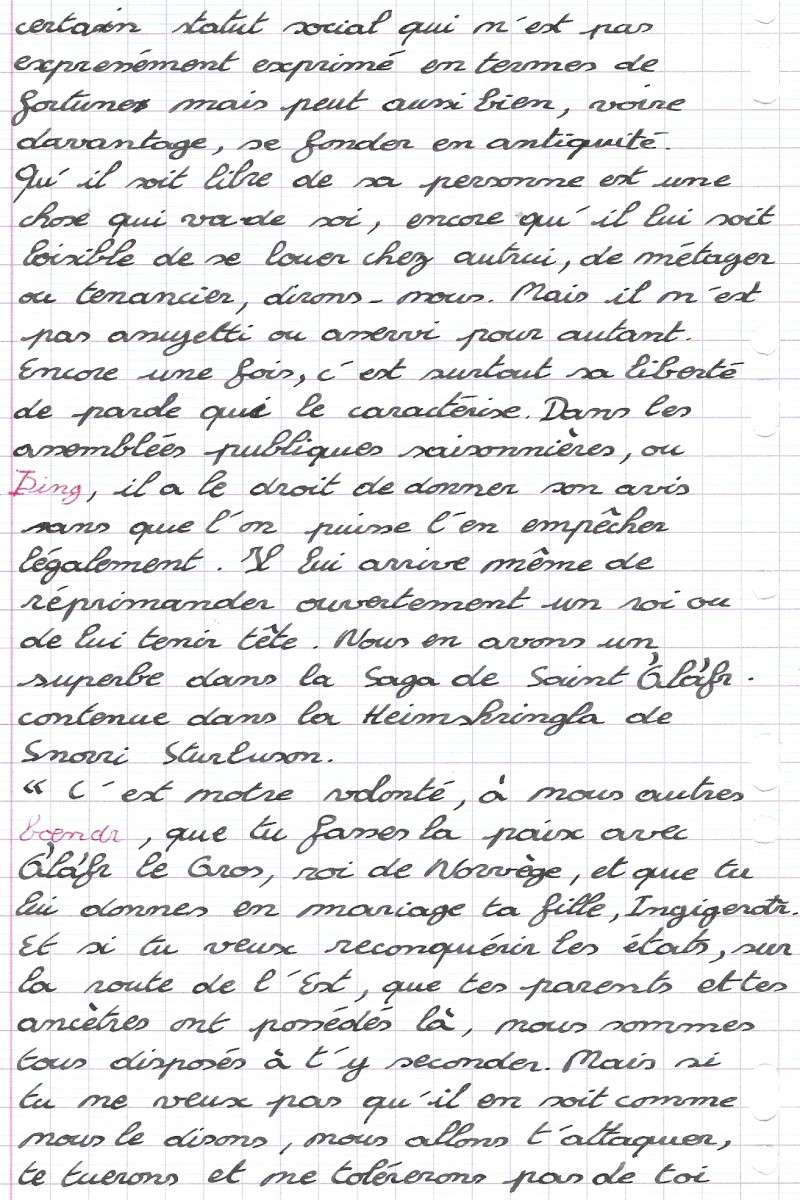 certain statut social qui n'est pas
expressément exprimé en termes de
fortunes mais peut aussi bien, voire
davantage, se fonder en antiquité.
Qu'il soit libre de sa personne est une
chose qui va de soi, encore qu'il lui soit
loisible de se louer chez autrui, de métayer
ou tenancier, dirons-nous. Mais il n'est
pas assujetti ou asservi pour autant.
Encore une fois, c'est surtout sa liberté
de parole qui le caractérise. Dans les
assemblées publiques saisonnières, ou
Þing, il a le droit de donner son avis
sans que l'on puisse l'en empêcher
légalement. Il lui arrive même de
réprimander ouvertement un roi ou
de lui tenir tête. Nous en avons un
superbe dans la Saga de Saint Óláfr.
contenue dans la Heimskringla de
Snorri Sturluson.
« C'est notre volonté, à nous autres
boendr, que tu fasses la paix avec
Óláfr le Gros, roi de Norvège, et que tu
lui donnes en mariage ta fille,
Et si tu veux reconquérir les états, sur
la route de l'Est, que tes parents et tes
ancètres ont possédés là, nous sommes
tous disposés à t'y seconder. Mais si
tu ne veux pas qu'il en soit comme
nous le disons, nous allons t'attaquer,
te tuerons et ne tolérerons pas de toi